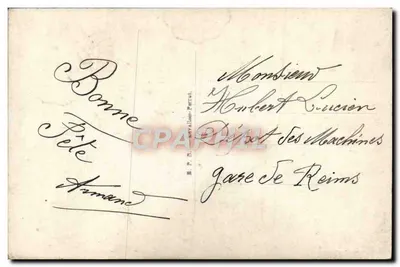 Bonne
Fête
Armand
Monsieur
Hubert Lucien
Dépot des Machines
gare de Reims